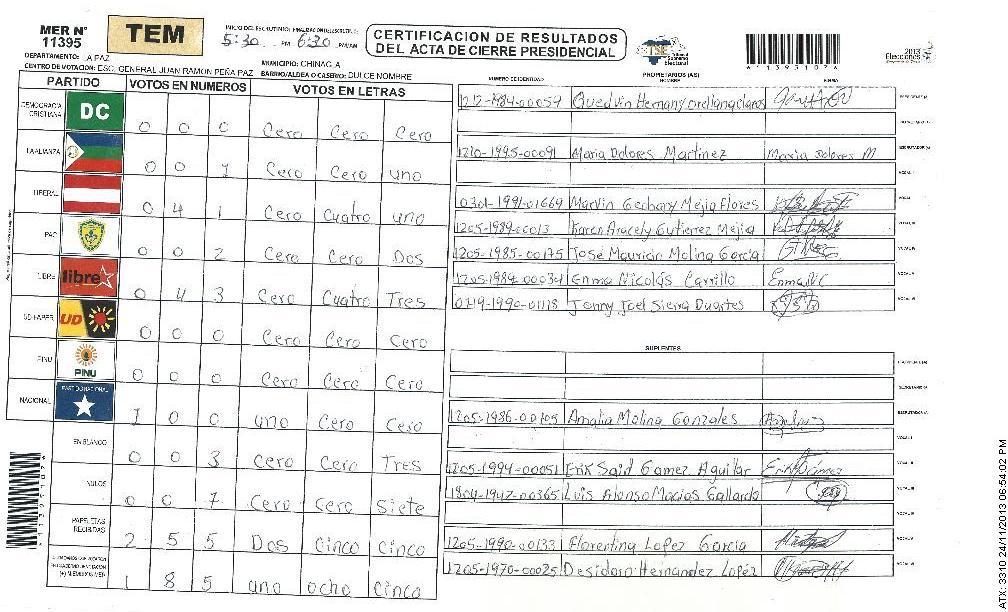 MER N° 11395
TEM
INICIO DEL ESCRUTINIO: 5:30 PM
FINALIZACION DEL ESCRUTINIO: 6:30 PM/AM
CERTIFICACION DE RESULTADOS
DEL ACTA DE CIERRE PRESIDENCIAL
TSE Tribunal Supremo Electoral
2013 Elecciones
DEPARTAMENTO: LA PAZ
MUNICIPIO: CHINACLA
CENTRO DE VOTACION: ESC. GENERAL JUAN RAMON PEÑA PAZ
BARRIO/ALDEA O CASERIO: DULCE NOMBRE
PARTIDO VOTOS EN NUMEROS VOTOS EN LETRAS
DEMOCRACIA CRISTIANA DC 0 0 0 Cero Cero Cero
LA ALIANZA 0 0 1 Cero Cero uno
LIBERAL 0 4 1 Cero Cuatro uno
PAC 0 0 2 Cero Cero Dos
LIBRE libre 0 4 3 Cero Cuatro Tres
UD-FAPER UD 0 0 0 Cero Cero Cero
PINU PINU 0 0 0 Cero Cero Cero
NACIONAL PARTIDO NACIONAL 1 0 0 uno Cero Cero
EN BLANCO 0 0 3 Cero Cero Tres
NULOS 0 0 7 Cero Cero Siete
PAPELETAS RECIBIDAS 2 5 5 Dos Cinco Cinco
(+) MIEMBROS MER 1 8 5 uno ocho Cinco
NUMERO DE IDENTIDAD PROPIETARIOS (AS) NOMBRE FIRMA
1212-1984-00059 Quedvin Hernany orellana claros
1210-1995-00091 Maria Dolores Martinez Maria Dolores M
0301-1991-01669 Marvin Geobany Mejia Flores
1205-1989-00013 Karen Aracely Gutierrez Mejia
1205-1985-00175 José Mauricio Molina Garcia
1205-1984-00034 Enma Nicolás Carrillo Enma N C
0219-1990-01118 Jonny Joel Sierra Duartes
SUPLENTES
1205-1986-00105 Amalia Molina Gonzales
1205-1994-00051 Erik Said Gomez Aguilar
1804-1947-00365 Luis Alonso Macias Gallardo
1205-1990-00133 Florentina Lopez Garcia
1205-1970-00025 Desidoro Hernandez Lopéz
ATX: 3310 24/11/2013 06:54:02 PM